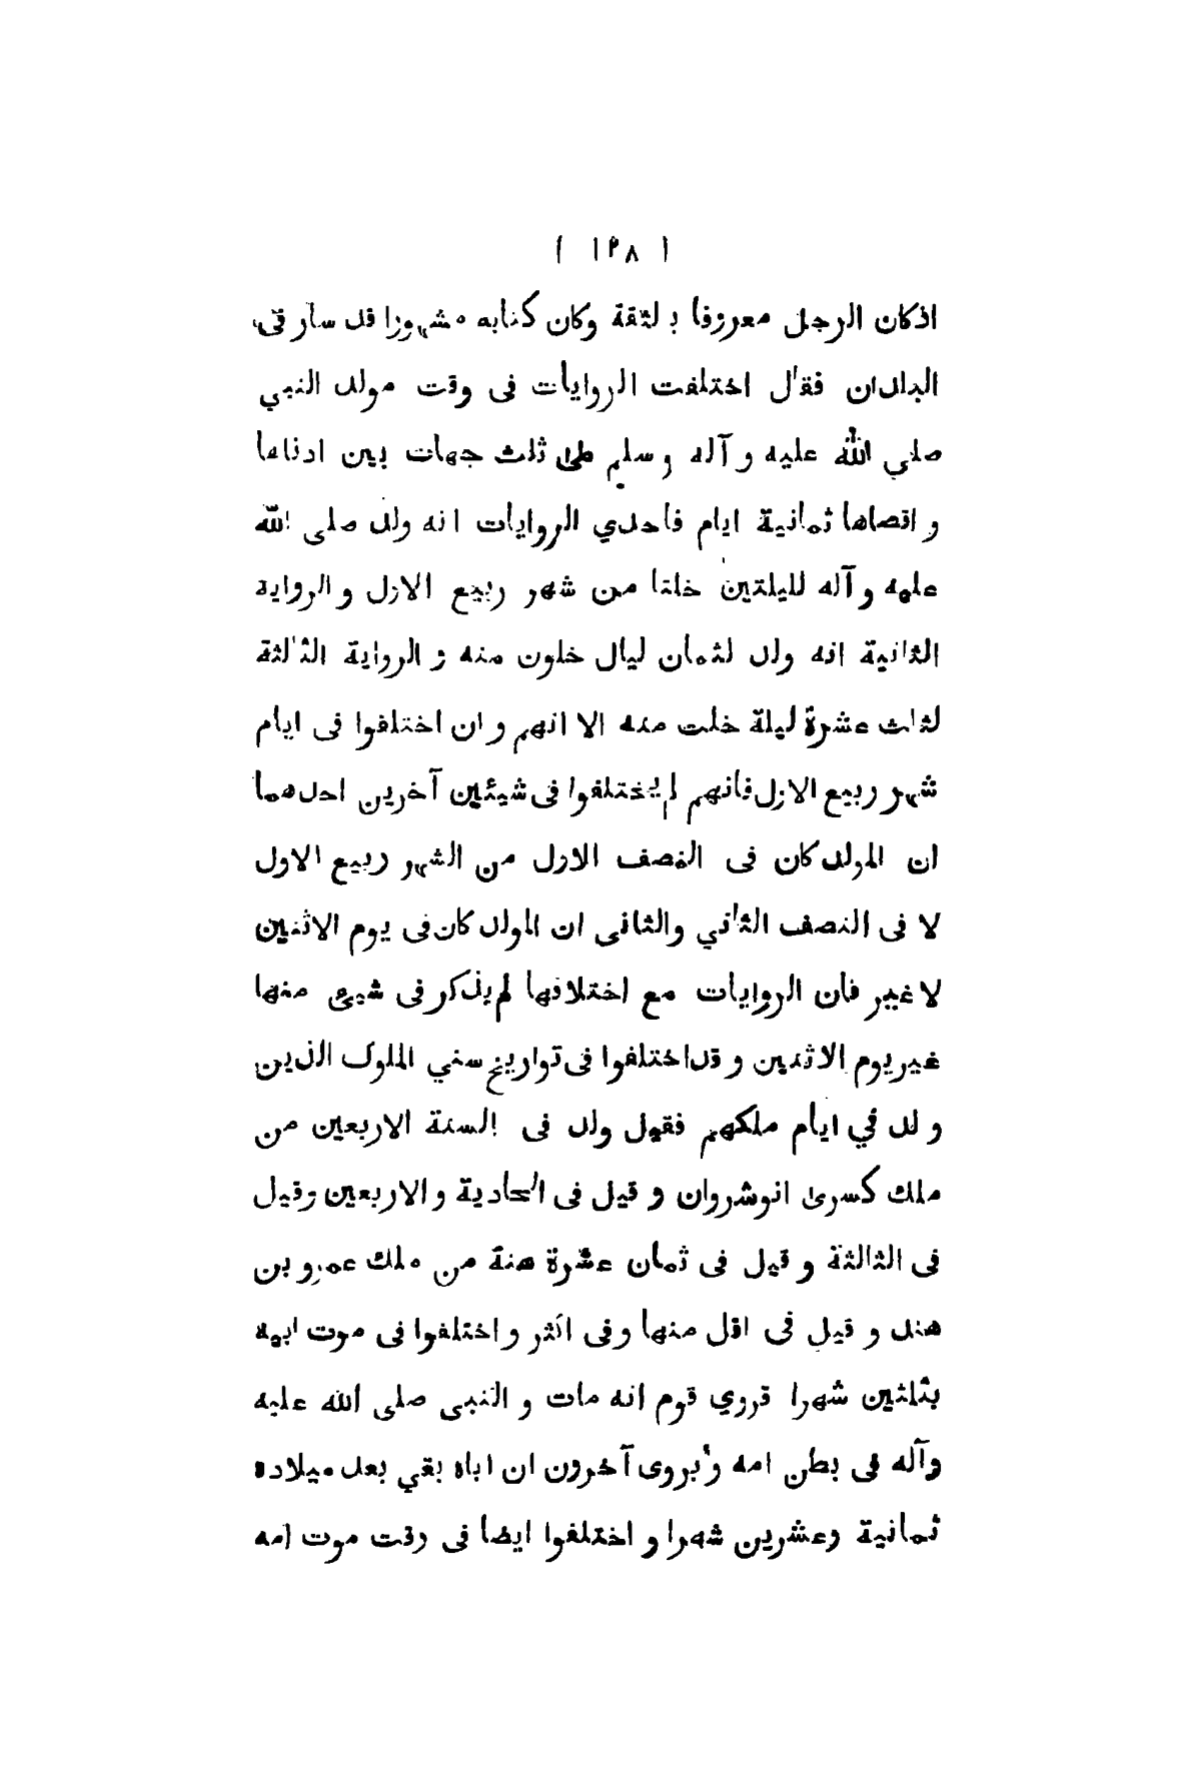 ( ١٢٨ )
اذكان الرجل معروفا بالثقة وكان كتابه مشهورا قد سار فى
البلدان فقال اختلفت الروايات فى وقت مولد النبي
صلي الله عليه و آله و سلم على ثلث جهات بين ادناها
و اقصاها ثمانية ايام فاحدي الروايات انه ولد صلى الله
عليه و آله لليلتين خلتا من شهر ربيع الاول و الرواية
الثانية انه ولد لثمان ليال خلون منه و الرواية الثالثة
لثلث عشرة ليلة خلت منه الا انهم و ان اختلفوا فى ايام
شهر ربيع الاول فانهم لم يختلفوا فى شيئين آخرين احدهما
ان المولد كان فى النصف الاول من الشهر ربيع الاول
لا فى النصف الثاني والثانى ان المولد كان فى يوم الاثنين
لا غير فان الروايات مع اختلافها لم يذكر فى شيئ منها
غير يوم الاثنين و قد اختلفوا فى تواريخ سني الملوك الذين
ولد في ايام ملكهم فقيل ولد فى السنة الاربعين من
ملك كسرى انوشروان و قيل فى الحادية و الاربعين وقيل
فى الثالثة و قيل فى ثمان عشرة سنة من ملك عمرو بن
هند و قيل فى اقل منها و فى اكثر و اختلفوا فى موت ابيه
بثلثين شهرا فروي قوم انه مات و النبى صلى الله عليه
وآله فى بطن امه و يروى آخرون ان اباه بقي بعد ميلاده
ثمانية وعشرين شهرا و اختلفوا ايضا فى وقت موت امه